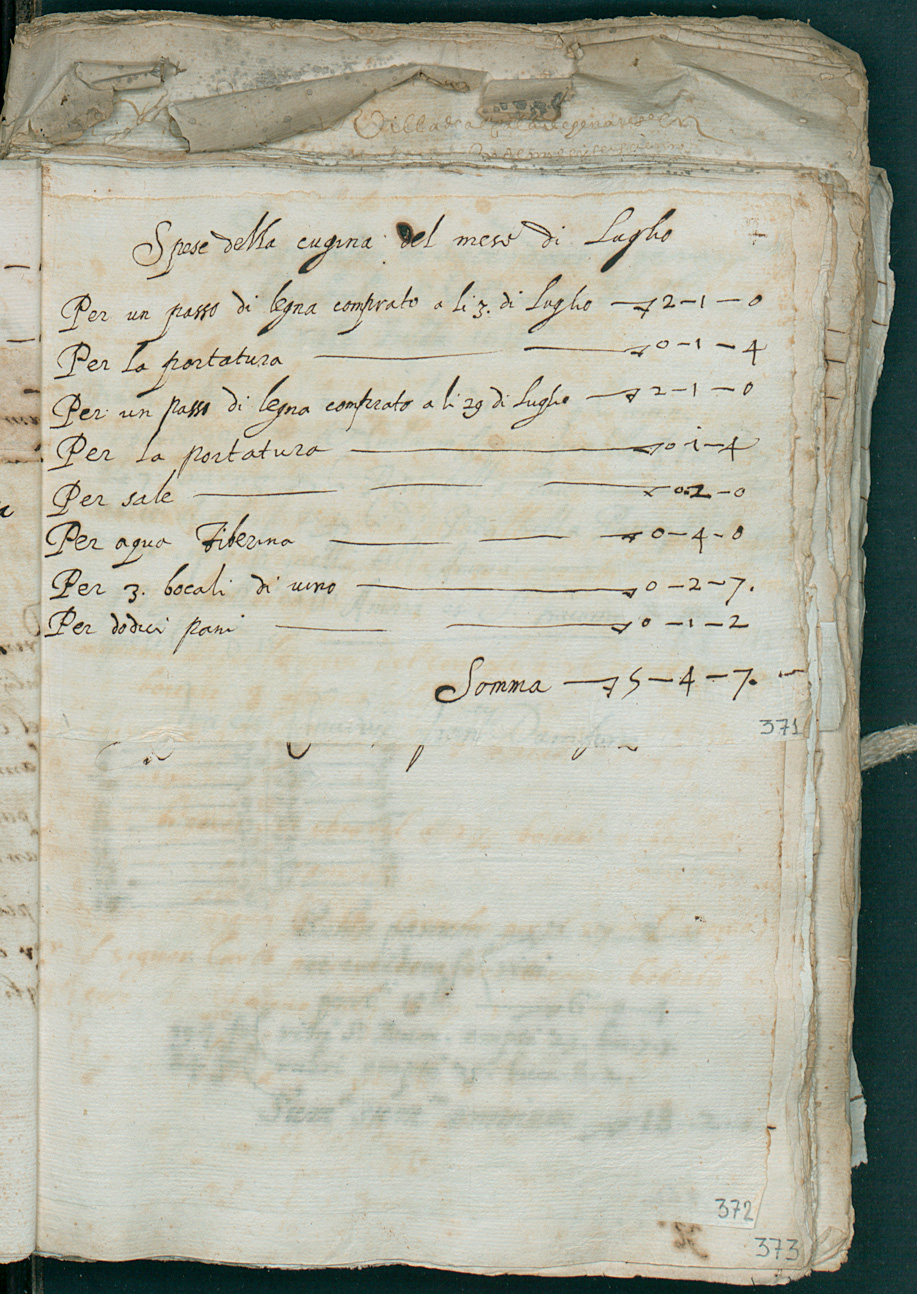 Spese della cugina del mese di Luglio
Per un passo di legna comprato a li 3. di Luglio 2-1-0
Per la portatura 0-1-4
Per un passo di legna comprato a li 29 di Luglio 2-1-0
Per la portatura 0-1-4
Per sale 0-2-0
Per aqua Tiberina 0-4-0
Per 3. bocali di vino 0-2-7.
Per dodici pani 0-1-2
Somma 5-4-7.
371
372
373